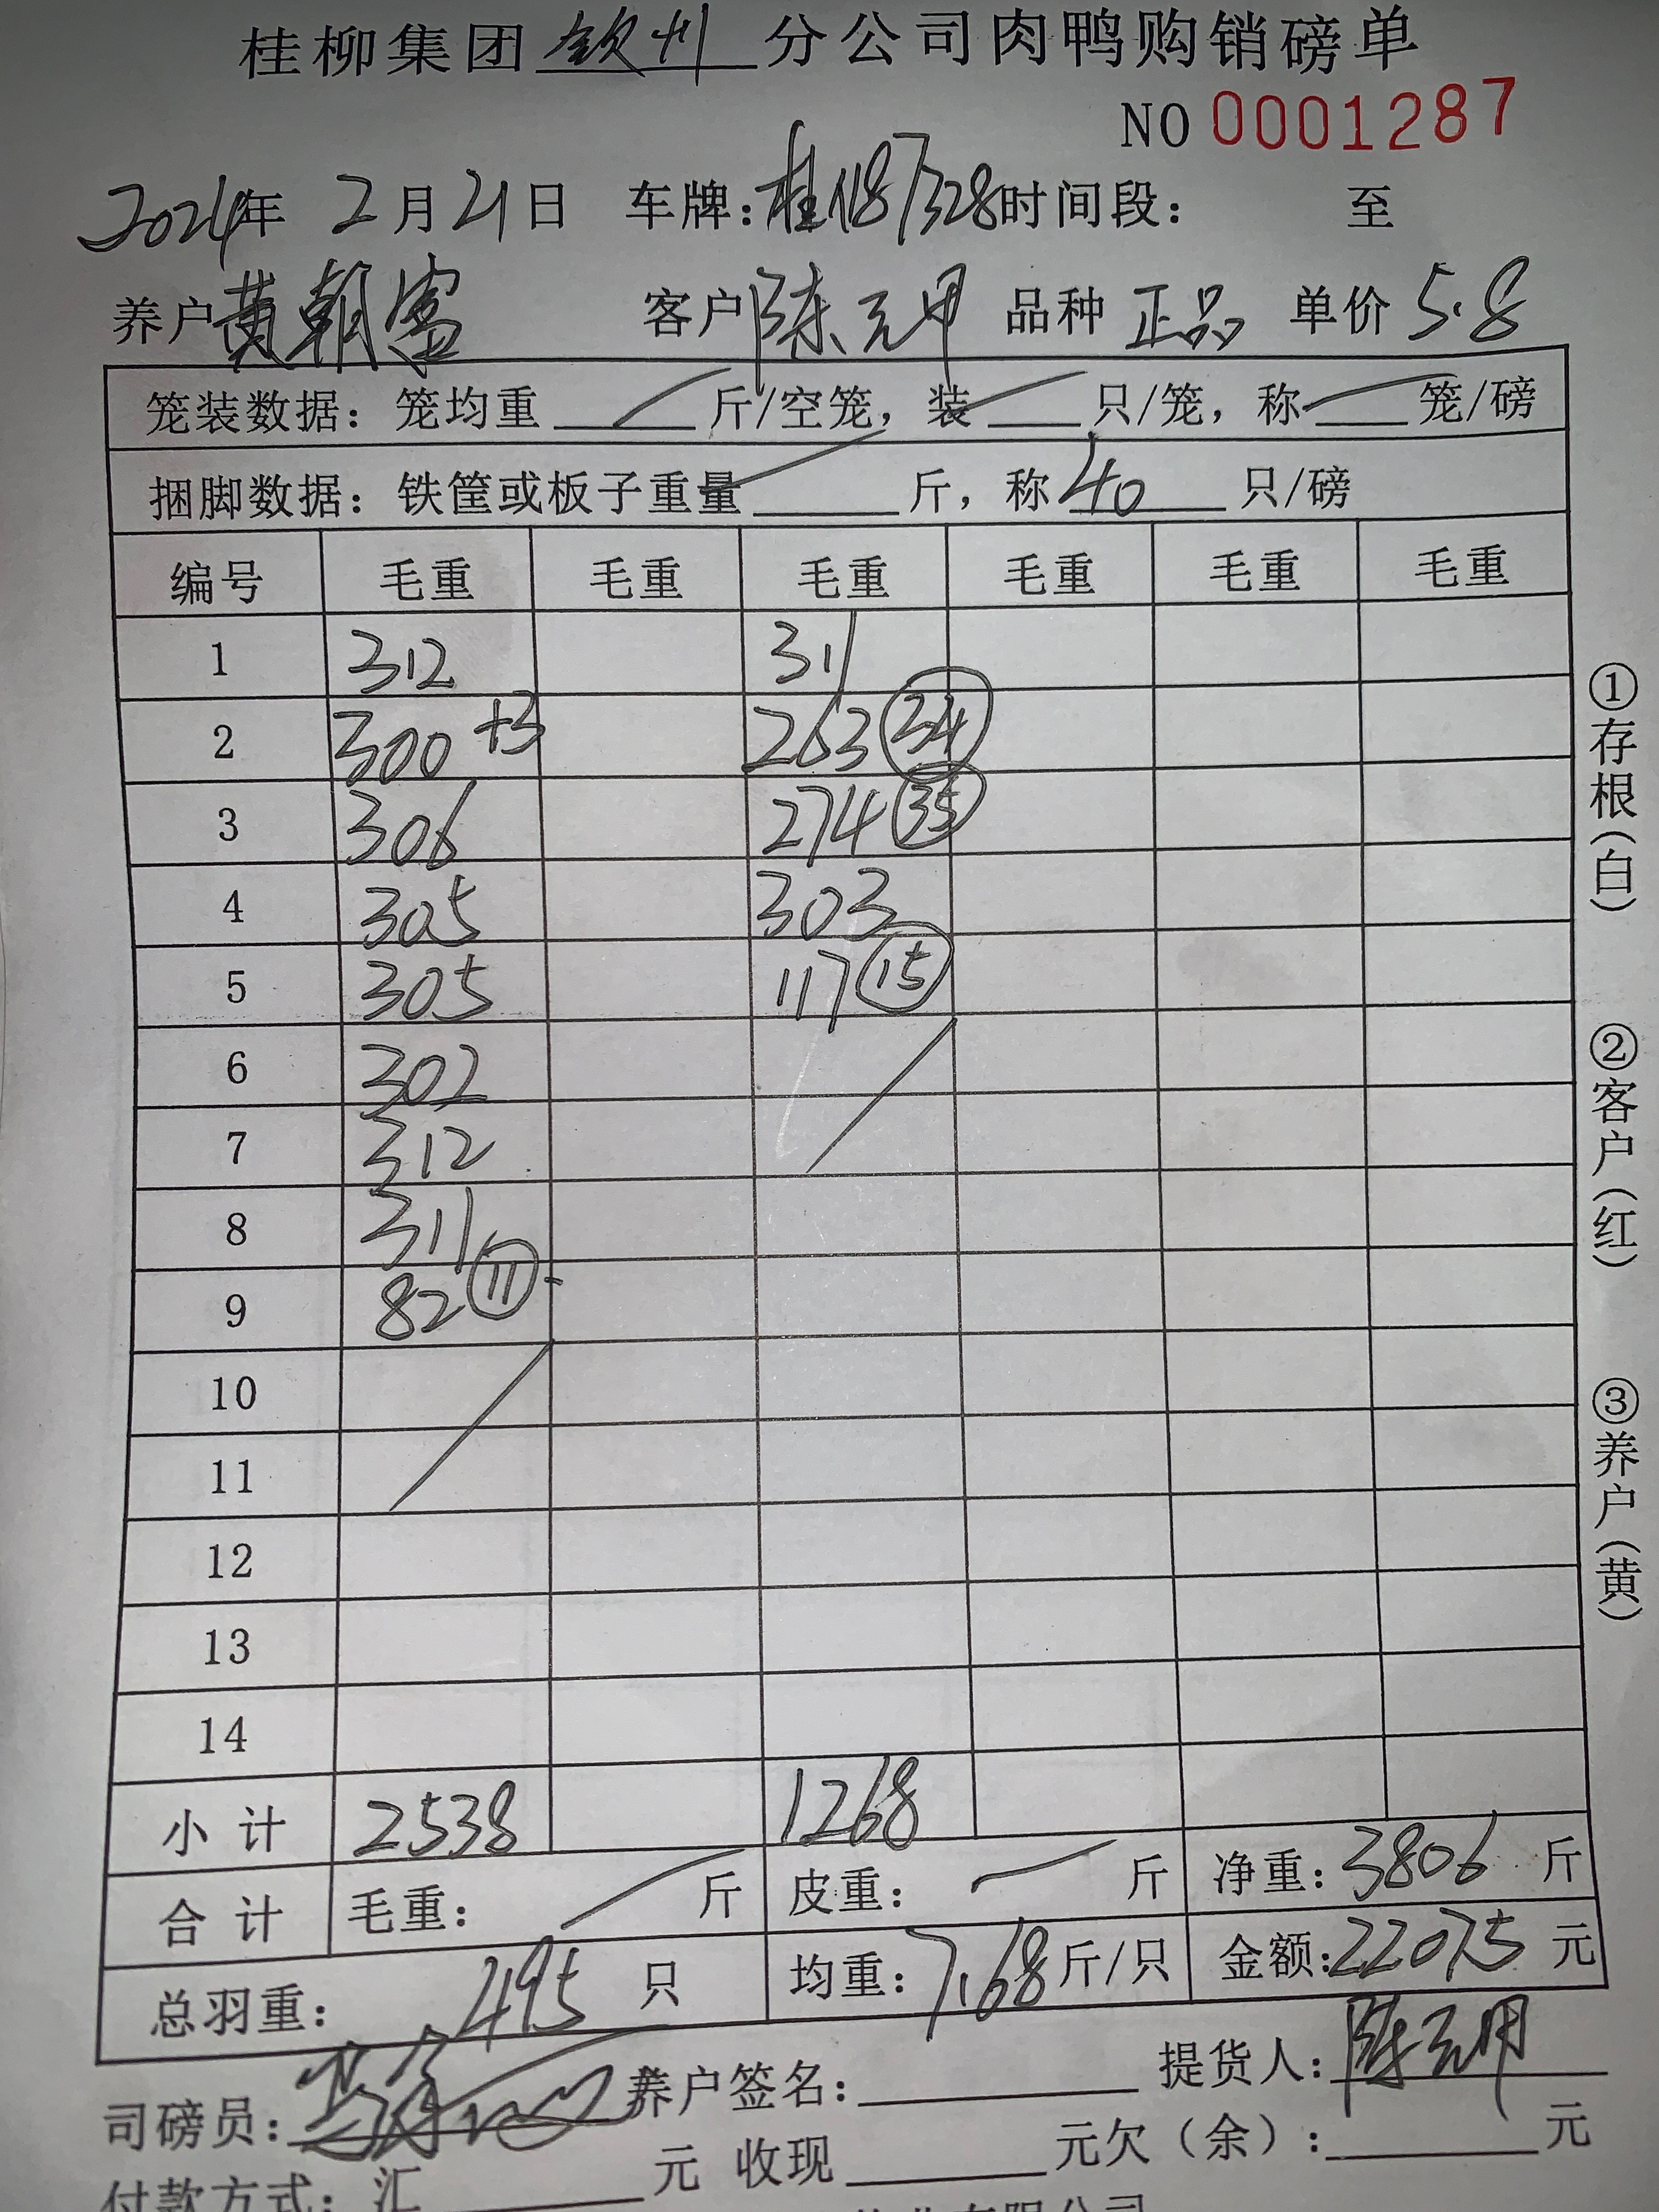 桂柳集团钦州分公司肉鸭购销磅单
NO 0001287
2024年 2月21日 车牌:桂 87328 时间段: 至
养户 黄朝富 客户 陈元甲 品种 正品 单价 5.8
笼装数据: 笼均重 斤/空笼, 装 只/笼, 称 笼/磅
捆脚数据: 铁筐或板子重量 斤, 称 40 只/磅
编号 毛重 毛重 毛重 毛重 毛重 毛重
1 312 311
2 300 +3 263 34
3 306 274 35
4 305 303
5 305 117 15
6 302
7 312
8 311
9 82 11
10
11
12
13
14
小计 2538 1268
合计 毛重: 斤 皮重: 斤 净重: 3806 斤
总羽重: 495 只 均重: 7.68 斤/只 金额: 22075 元
司磅员: 养户签名: 提货人:
付款方式: 汇 元 收现 元欠(余): 元
①存根(白)
②客户(红)
③养户(黄)